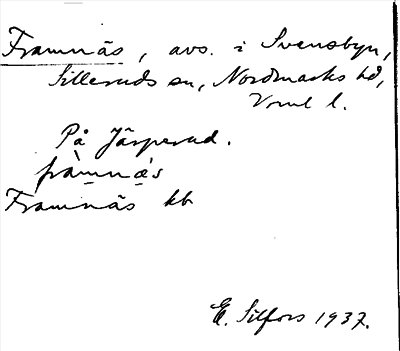 Framnäs, avs. i Svensbyn,
Silleruds sn, Nordmarks hd,
Vrml l.
På Järperud.
fràmnä́s
Framnäs kb
E. Silfors 1937.